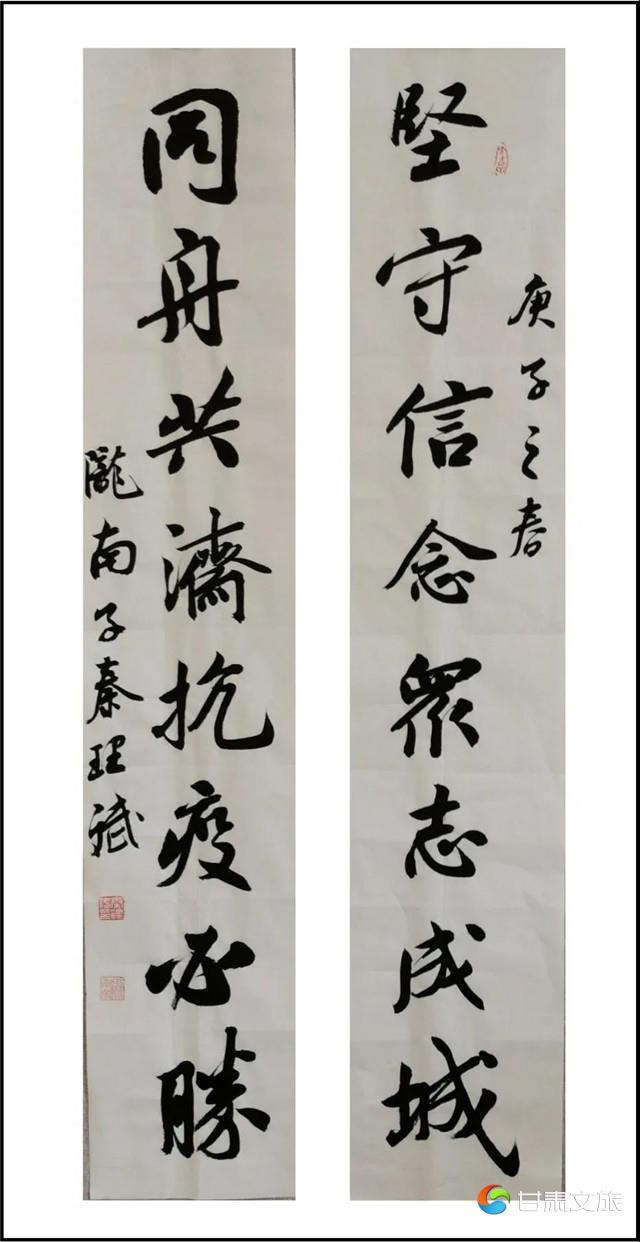 堅守信念眾志成城
庚子之春
同舟共濟抗疫必勝
隴南子秦理斌
甘肃文旅